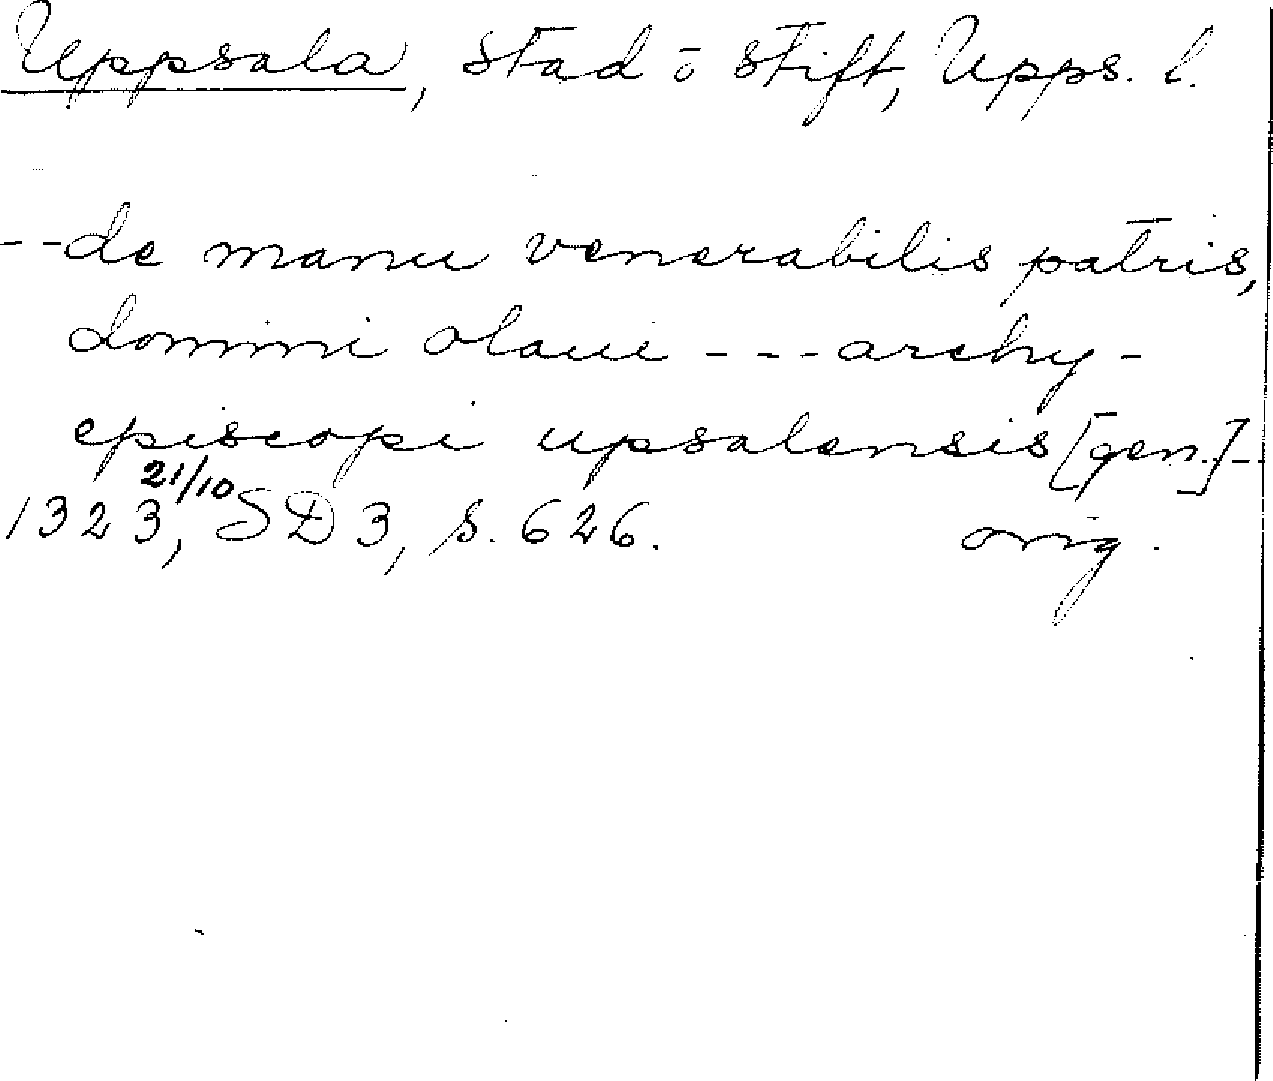 Uppsala, stad ō stift, Upps. l.
--de manu venerabilis patris,
domini olaui --- archy-
episcopi upsalensis [gen.]--
21/10
1323, SD 3, s. 626. orig.